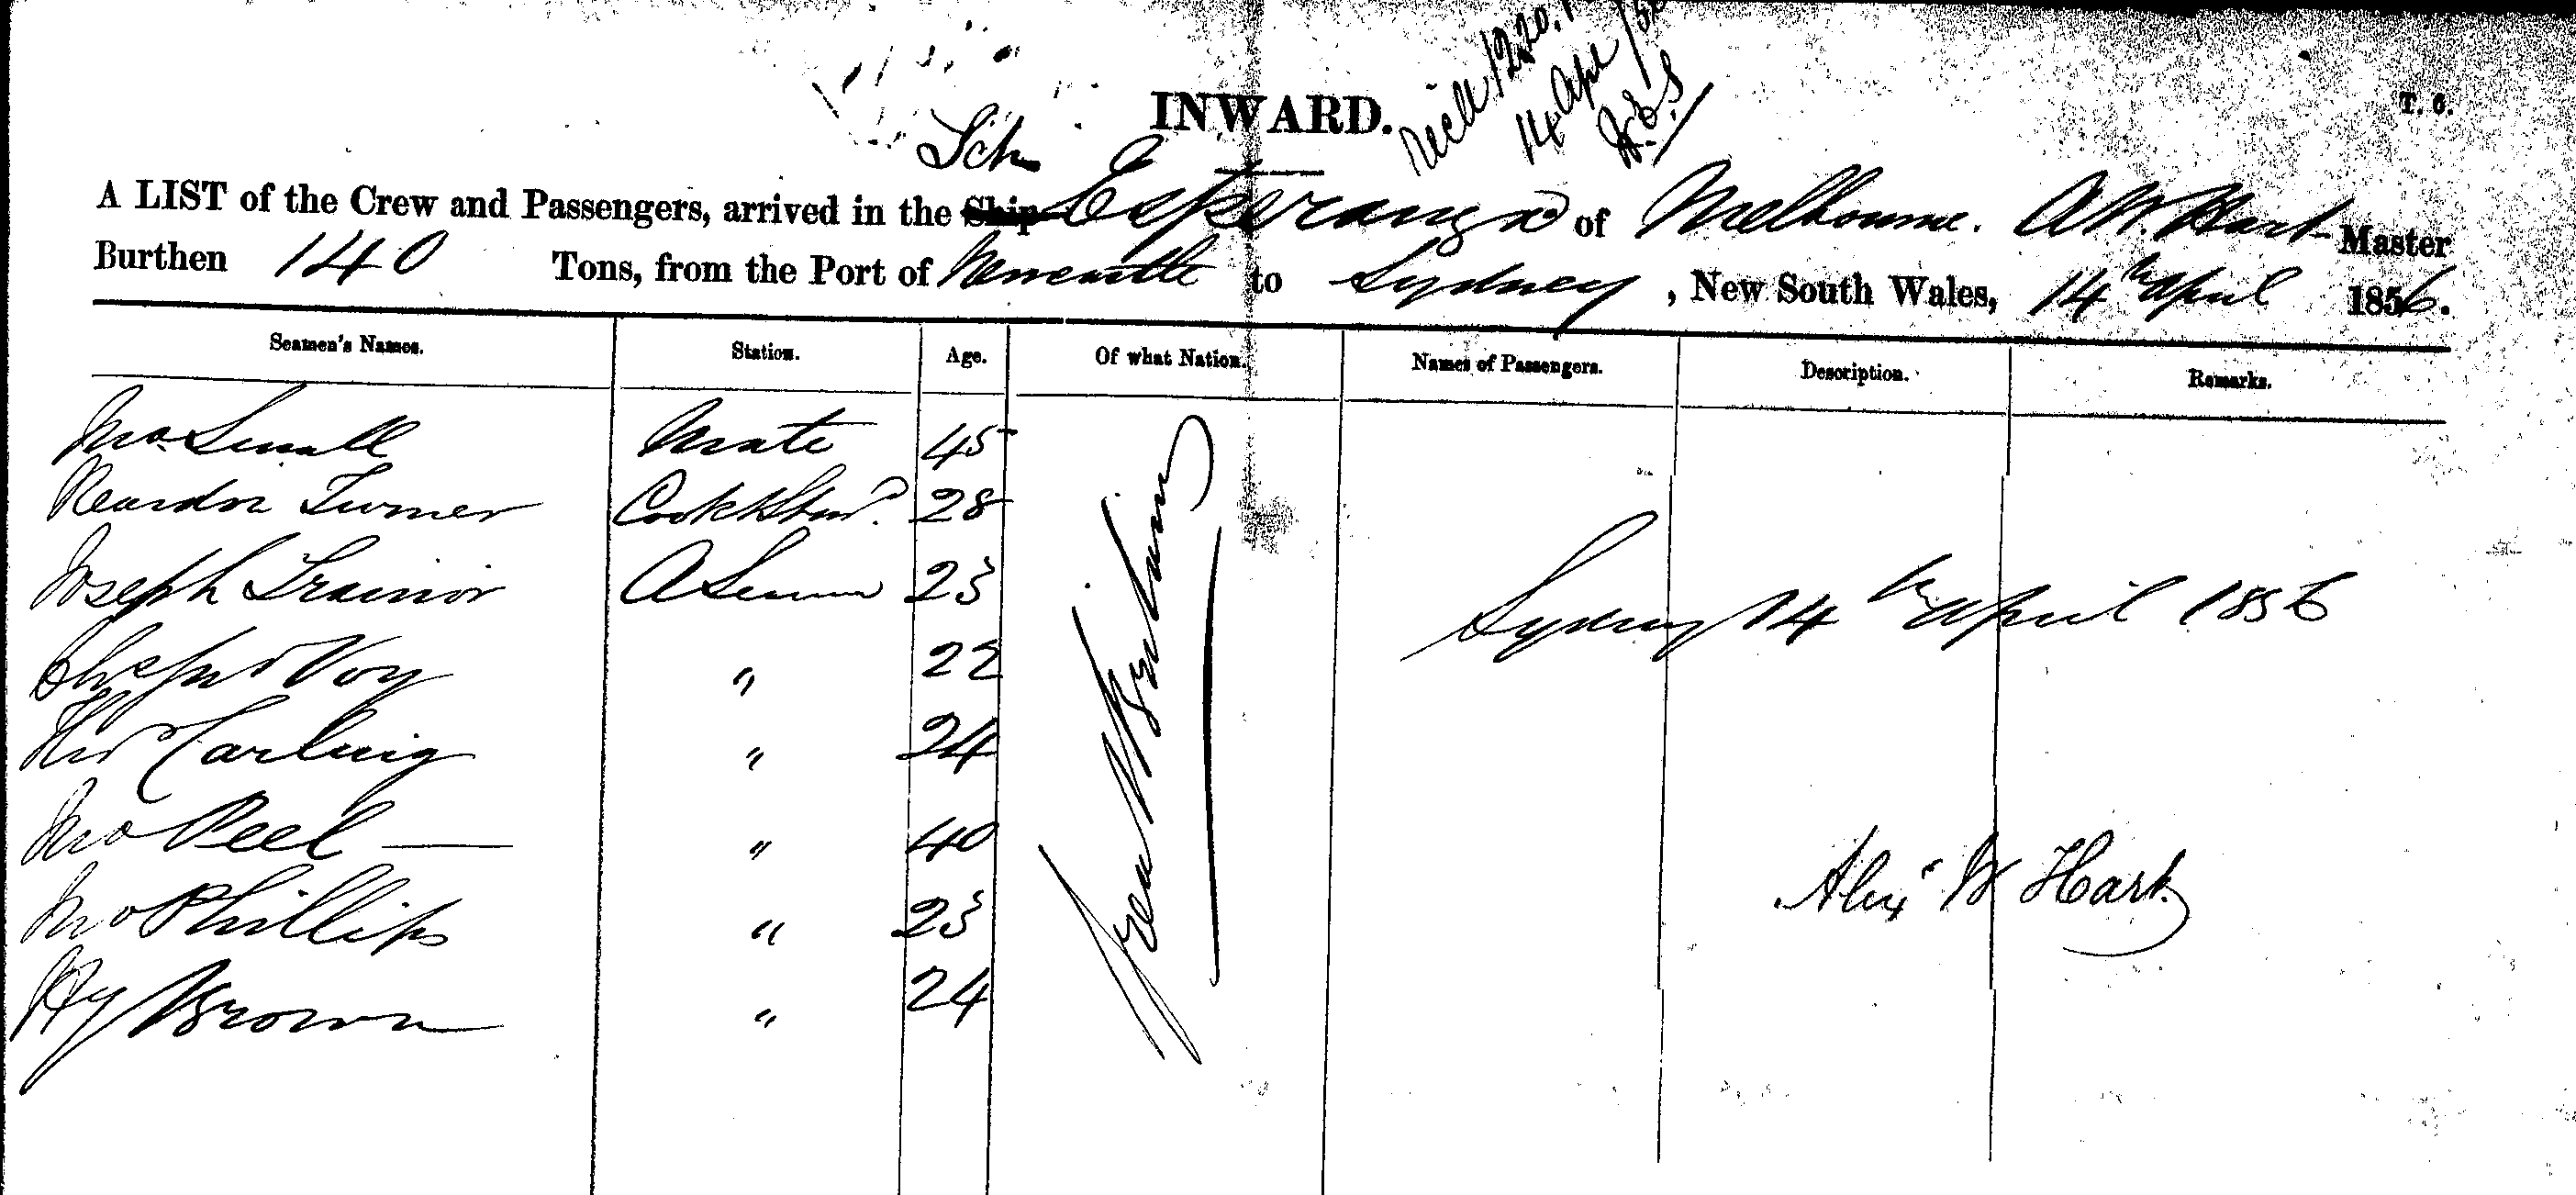 INWARD.
T. 6.
14 Apl
Sch
A LIST of the Crew and Passengers, arrived in the Ship Esperanza of Melbourne. A W. Hart Master
Burthen 140 Tons, from the Port of Newcastle to Sydney, New South Wales, 14th April 1856.
Seamen's Names. Station. Age. Of what Nation. Names of Passengers. Description. Remarks.
Jno Small Mate 45
Reardon Turner Cook & Stwd. 28
Joseph Trainor A Seaman 23
Voy " 22
Carling " 24
Jno Peel " 40
Jno Phillips " 23
Hy Brown " 24
Great Britain
Sydney 14th April 1856
Alexr W Hart